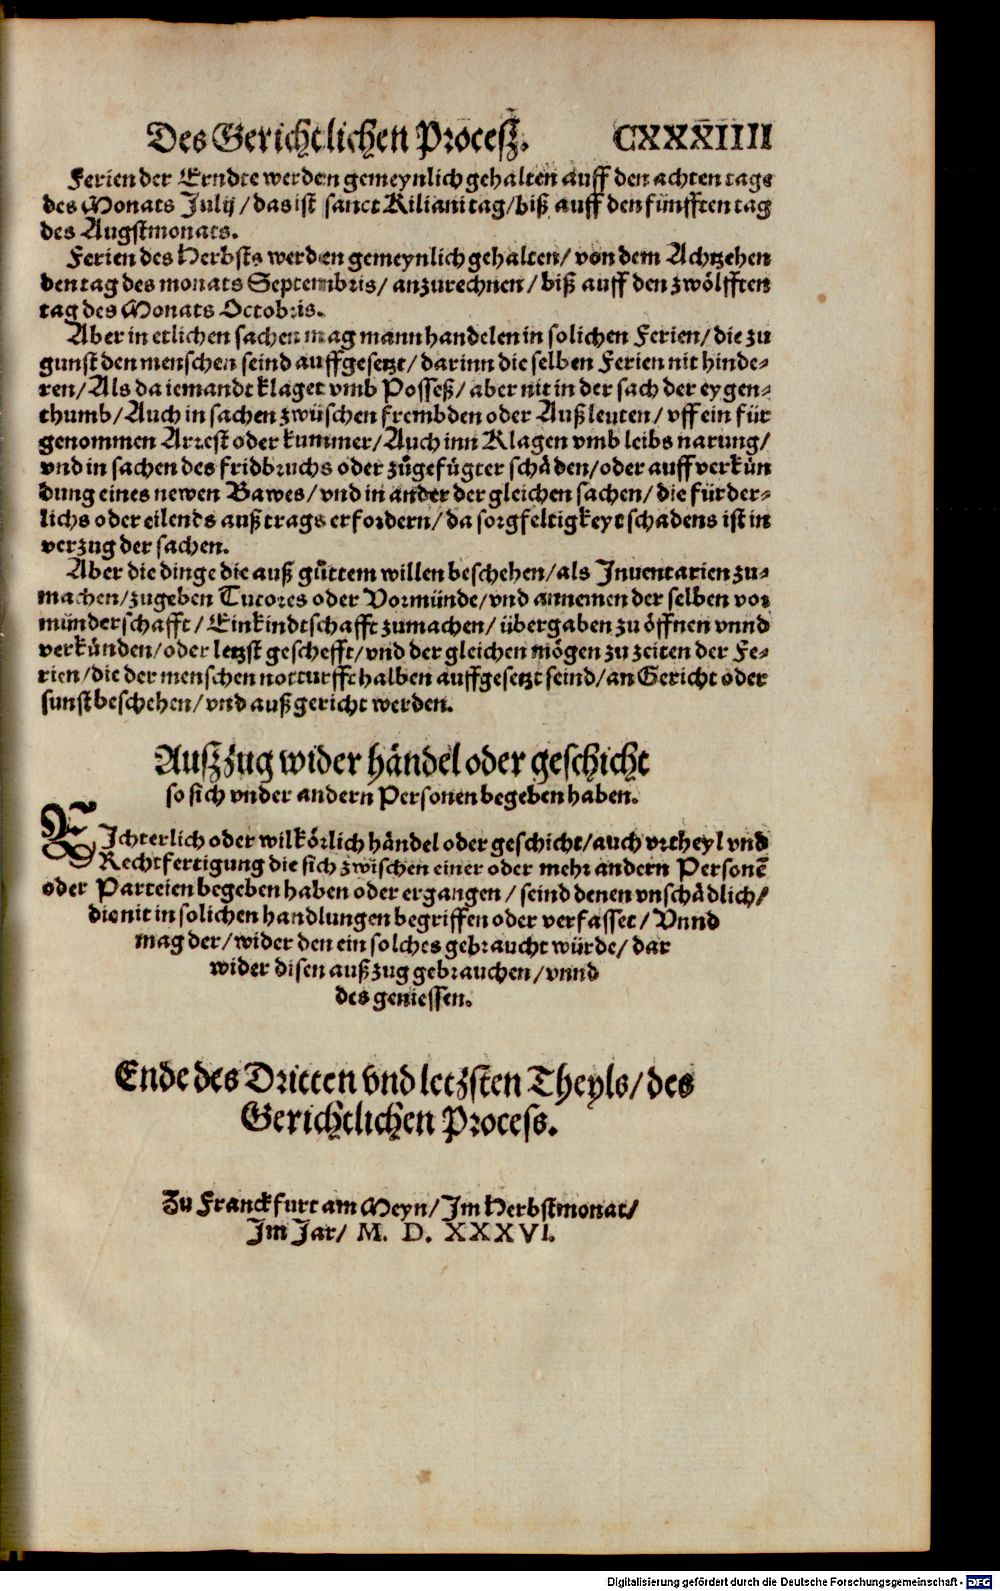 Des Gerichtlichen Procesz. CXXXIIII
Ferien der Erndte werden gemeynlich gehalten auff den achten tage
des Monats Julij / das ist sanct Kiliani tag / biß auff den fünfften tag
des Augstmonats.
Ferien des Herbsts werden gemeynlich gehalten / von dem Achtzehen
den tag des monats Septembris / anzurechnen / biß auff den zwölfften
tag des Monats Octobris.
Aber in etlichen sachen mag mann handelen in solichen Ferien / die zu
gunst den menschen seind auffgesetzt / darinn die selben Ferien nit hinde-
ren / Als da iemandt klaget vmb Posseß / aber nit in der sach der eygen-
thumb / Auch in sachen zwüschen frembden oder Außleuten / vff ein für
genommen Arrest oder kummer / Auch inn Klagen vmb leibs narung /
vnd in sachen des fridbruchs oder zůgefügter schäden / oder auff verkün
dung eines newen Bawes / vnd in ander der gleichen sachen / die fürder-
lichs oder eilends außtrags erfordern / da sorgfeltigkeyt schadens ist in
verzug der sachen.
Aber die dinge die auß gůttem willen beschehen / als Inuentarien zu-
machen / zugeben Tutores oder Vormünde / vnd annemen der selben vor
münderschafft / Einkindtschafft zumachen / übergaben zu öffnen vnnd
verkünden / oder letzst geschefft / vnd der gleichen mögen zu zeiten der Fe-
rien / die der menschen notturfft halben auffgesetzt seind / an Gericht oder
sunst beschehen / vnd außgericht werden.
Auszzug wider händel oder geschicht
so sich vnder andern Personen begeben haben.
RIchterlich oder wilkörlich händel oder geschicht / auch vrtheyl vnd
Rechtfertigung die sich zwischen einer oder mehr andern Personē
oder Parteien begeben haben oder ergangen / seind denen vnschädlich /
die nit in solichen handlungen begriffen oder verfasset / Vnnd
mag der / wider den ein solches gebraucht würde / dar
wider disen außzug gebrauchen / vnnd
des geniessen.
Ende des Dritten vnd letzsten Theyls / des
Gerichtlichen Process.
Zu Franckfurt am Meyn / Im Herbstmonat /
Im Jar / M. D. XXXVI.
Digitalisierung gefördert durch die Deutsche Forschungsgemeinschaft - DFG